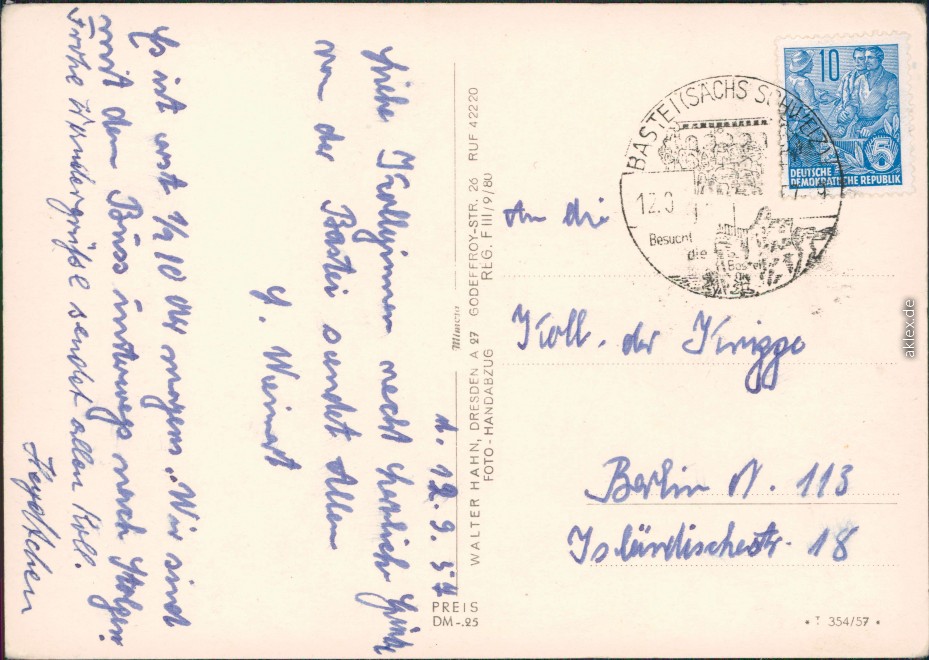 d. 12.9.57
Liebe Kolleginnen recht herzliche Grüße
von der Bastei sendet Allen
H. Weinert
Es ist erst 1/2 10 Uhr morgens. Wir sind
mit dem Buss unterwegs nach Stolpen
Frohe Wandergrüße sendet allen Koll.
PREIS
DM -.25
Mimosa
WALTER HAHN, DRESDEN A 27 GODEFFROY-STR. 26 RUF 42220
FOTO-HANDABZUG REG. F III/9/80
BASTEI (SÄCHS SCHWEIZ)
12.9
57.-9
Besucht
die
Bastei
10
5
DEUTSCHE
DEMOKRATISCHE REPUBLIK
An die
Koll. der Krippe
Berlin N. 113
Isländischestr. 18
354/57
aklex.de